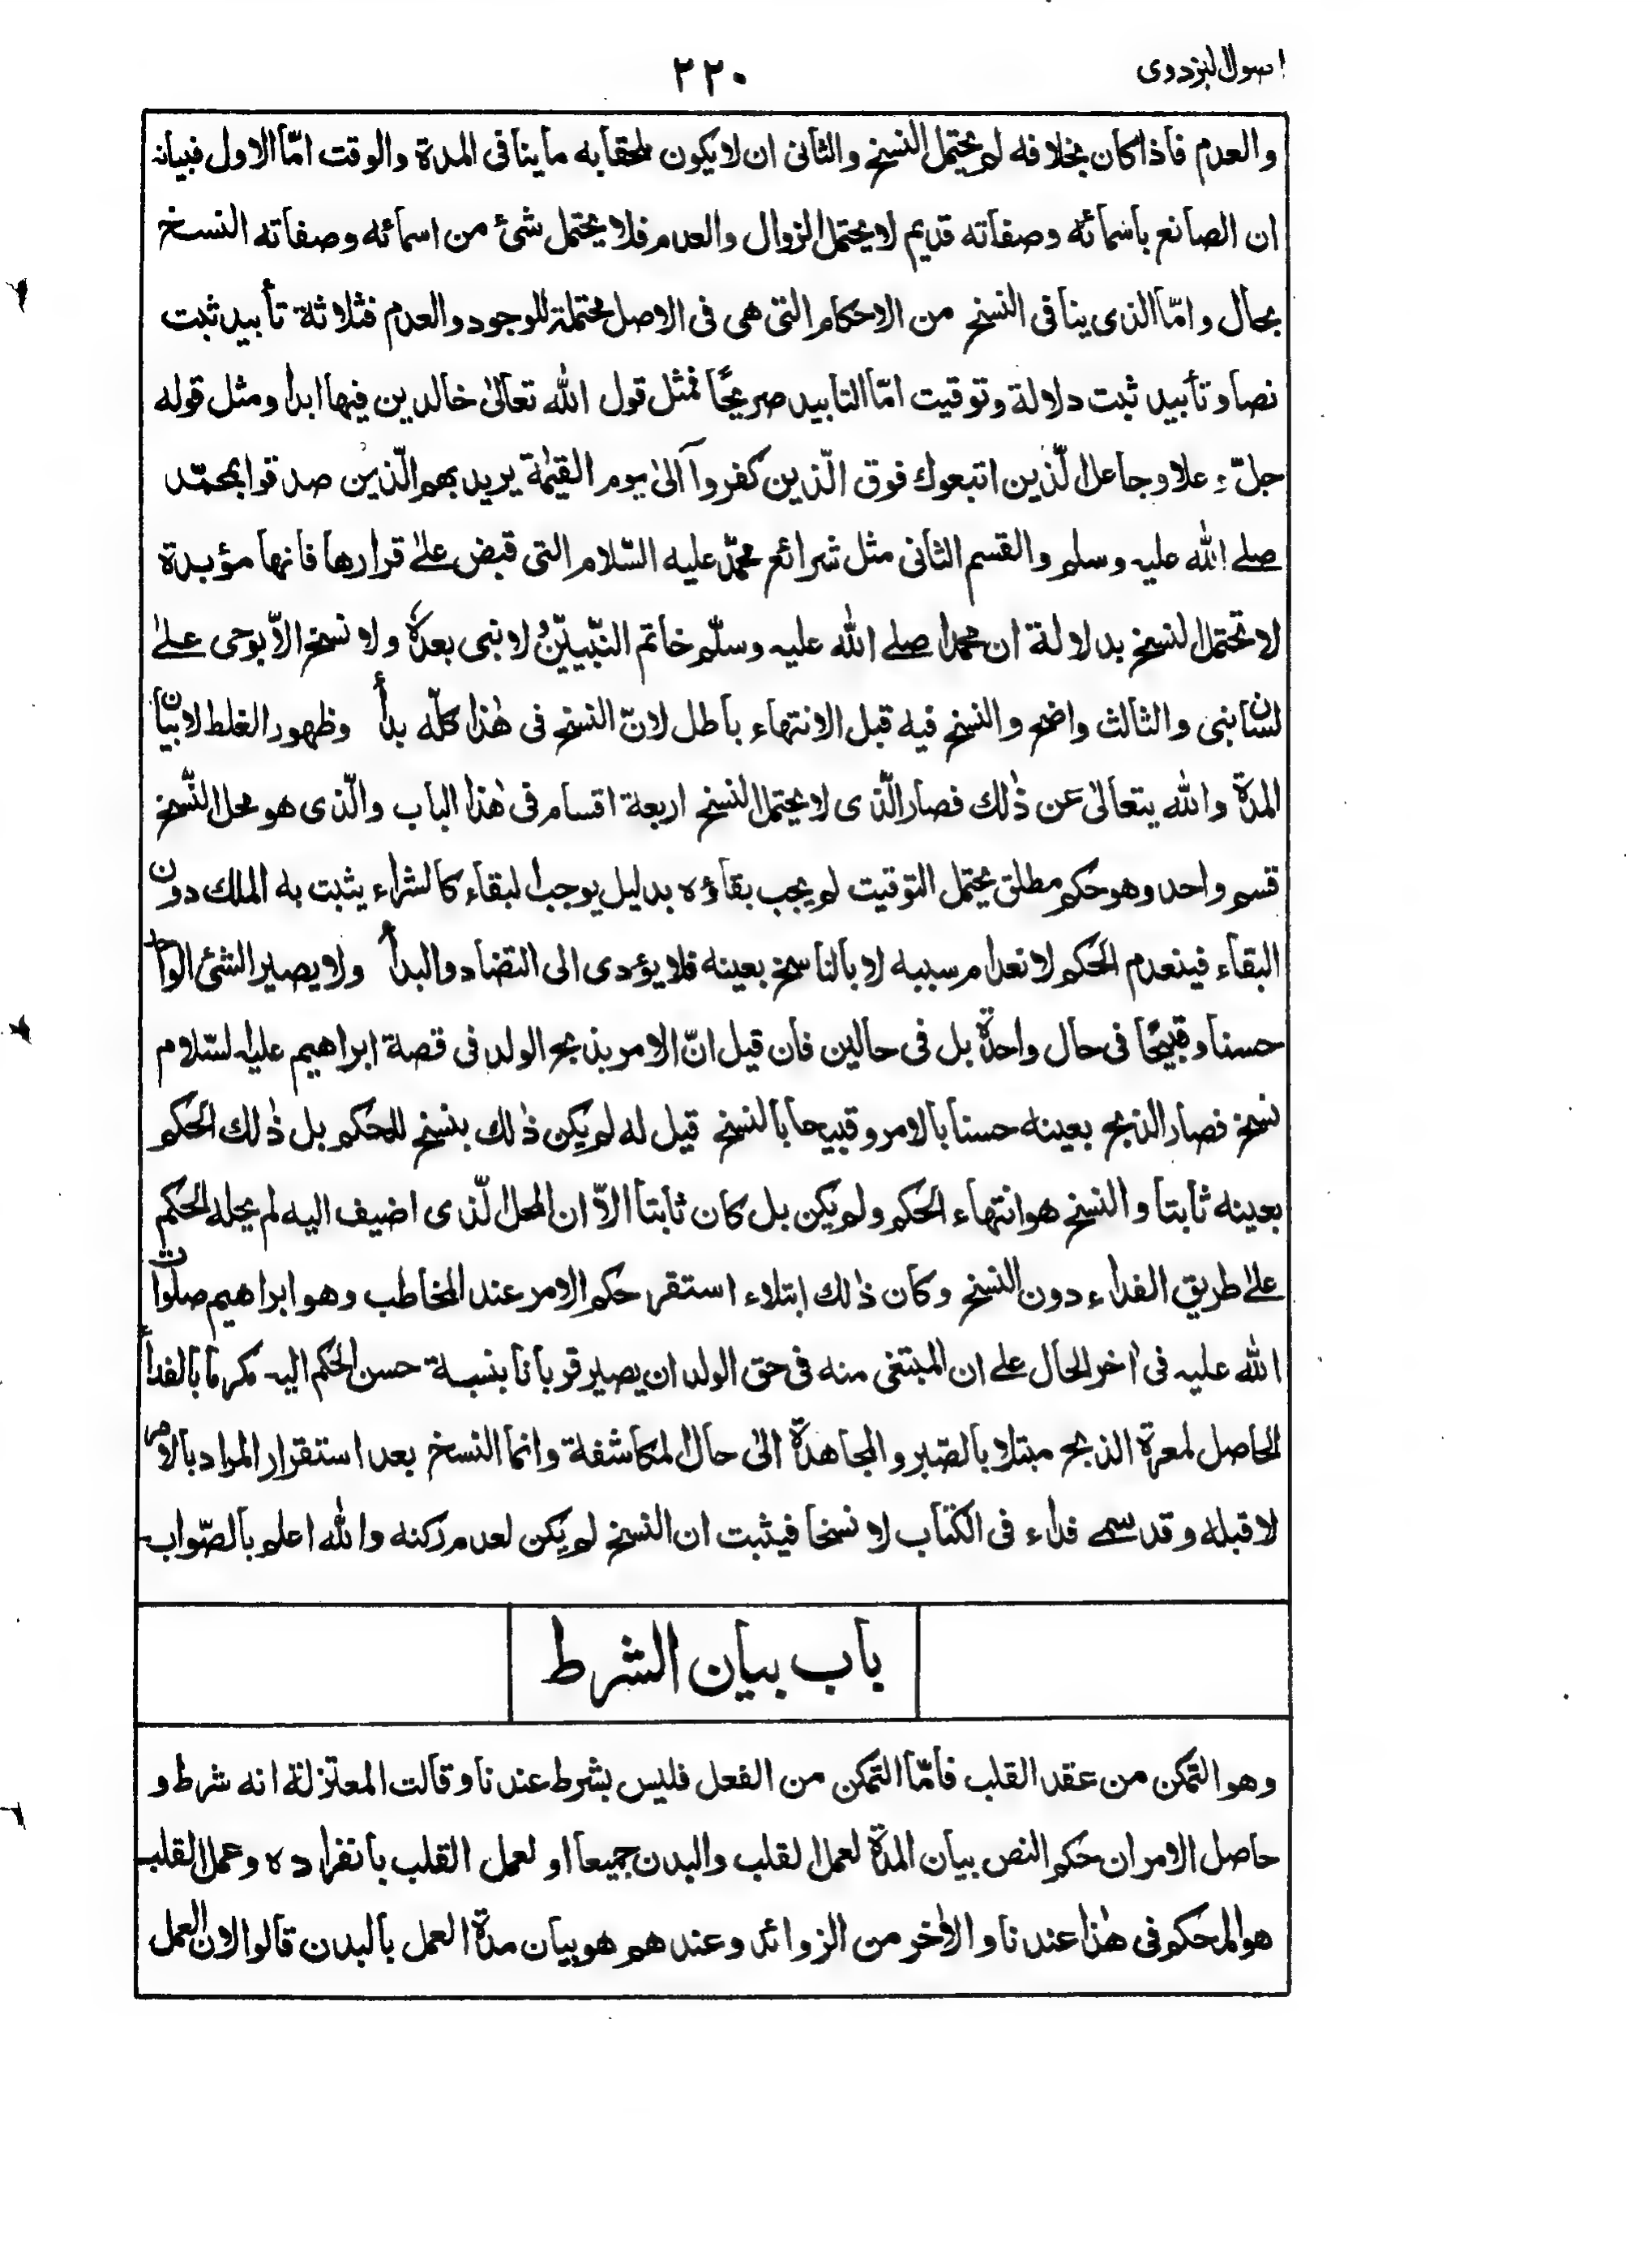 اصول البزدوی
۲۲۰
والعدم فاذا كان بخلافه لم يحتمل النسخ والثانى ان لا يكون ملحقا به ما ينافى المدة والوقت امّا الاول فبيانه
ان الصانع باسمائه وصفاته قديم لا يحتمل الزوال والعدم فلا يحتمل شئ من اسمائه وصفاته النسخ
بحال وامّا الذى ينافى النسخ من الاحكام التى هى فى الاصل محتملة للوجود والعدم فثلاثة تأبيد ثبت
نصا وتأبيد ثبت دلالة وتوقيت امّا التابيد صريحًا فمثل قول الله تعالىٰ خالدين فيها ابدا ومثل قوله
جلّ وعلا وجاعل الّذين اتبعوك فوق الّذين كفروآ الىٰ يوم القيٰمة يريد بهم الّذين صدقوا بمحمّد
صلے الله عليه وسلم والقسم الثانى مثل شرائع محمّد عليه السّلام التى قبض علىٰ قرارها فانها مؤبدة
لا تحتمل النسخ بدلالة ان محمدا صلے الله عليه وسلّم خاتم النّبيّينُ لا نبى بعدهٗ ولا نسخ الاّ بوحى علىٰ
لسان نبى والثالث واضح والنسخ فيه قبل الانتهاء باطل لانّ النسخ فى هٰذا كلّه بدأ وظهور الغلط لا بيان
المدة والله يتعالىٰ عن ذٰلك فصار الّذى لا يحتمل النسخ اربعة اقسام فى هٰذا الباب والّذى هو محل النّسخ
قسم واحد وهو حكم مطلق يحتمل التوقيت لم يجب بقاؤه بدليل يوجب البقاء كالشراء يثبت به الملك دون
البقاء فينعدم الحكم لانعدام سببه لا بالناسخ بعينه فلا يؤدى الى التضاد والبدأ ولا يصير الشئ الواحد
حسنا وقبيحًا فى حال واحدة بل فى حالين فان قيل انّ الامر بذبح الولد فى قصة ابراهيم عليه السّلام
نسخ فصار الذبح بعينه حسنا بالامر وقبيحا بالنسخ قيل له لم يكن ذٰلك بنسخ للحكم بل ذٰلك الحكم
بعينه ثابتا والنسخ هو انتهاء الحكم ولم يكن بل كان ثابتا الاّ ان المحل الّذى اضيف اليه لم يحله الحكم
علىٰ طريق الفداء دون النسخ وكان ذٰلك ابتلاء استقر حكم الامر عند المخاطب وهو ابراهيم صلوات
الله عليه فى اٰخر الحال علے ان المبتغى منه فى حق الولد ان يصير قربانا بنسبة حسن الحكم اليه مكرما بالفدأ
الحاصل لمعرة الذبح مبتلا بالصّبر والمجاهدة الىٰ حال المكاشفة وانما النسخ بعد استقرار المراد بالامر
لا قبله وقد سمے فداء فى الكتاب لا نسخا فيثبت ان النسخ لم يكن لعدم ركنه والله اعلم بالصّواب
باب بيان الشرط
وهو التمكن من عقد القلب فامّا التمكن من الفعل فليس بشرط عندنا وقالت المعتزلة انه شرط و
حاصل الامر ان حكم النص بيان المدة لعمل القلب والبدن جميعا او لعمل القلب بانفراده وعمل القلب
هو المحكم فى هٰذا عندنا والاٰخر من الزوائد وعندهم هو بيان مدة العمل بالبدن قالوا لان العمل